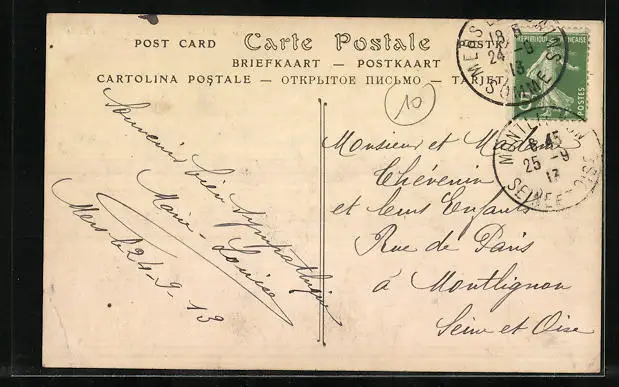 POST CARD Carte Postale
BRIEFKAART — POSTKAART
CARTOLINA POSTALE — ОТКРЫТОЕ ПИСЬМО —
10
MERS
24 - 9
13
SOMME
RÉPUBLIQUE FRANÇAISE
POSTES
5
MONTLIGNON
8 45
25 - 9
13
SEINE-ET-OISE
Souvenir bien sympathique
Marie-Louise
Mers le 24-9-13
Monsieur et Madame
Thévenin
et leurs Enfants
Rue de Paris
à Montlignon
Seine et Oise